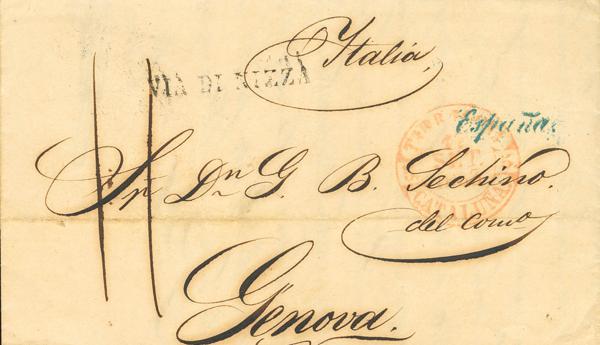 Italia,
VIA DI NIZZA
España
CATALUÑA
11
Sr Dn G. B. Sechino.
del como
Genova.